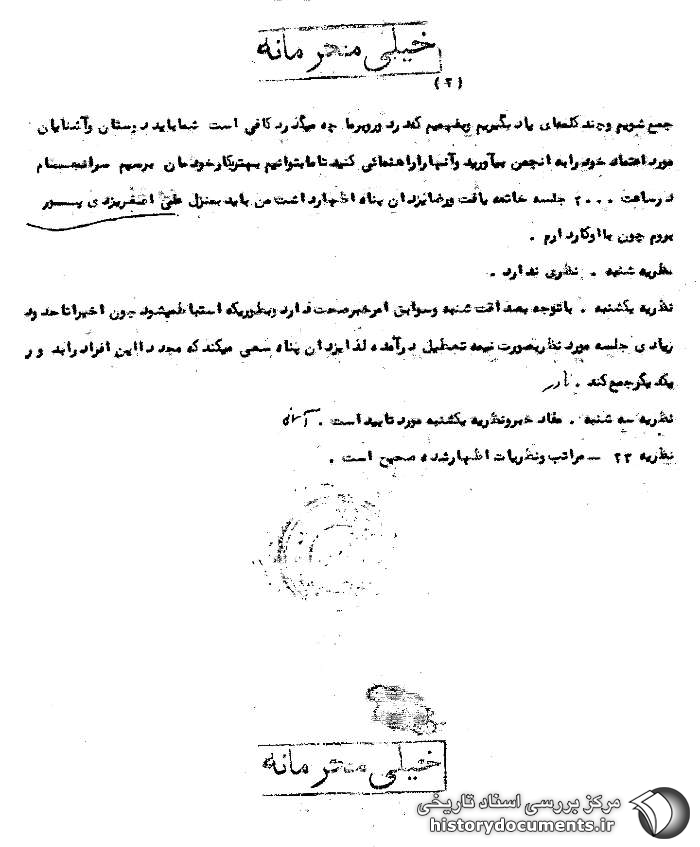 خیلی محرمانه
(۲)
جمع شویم و چند کلمه‌ای یاد بگیریم و بفهمیم که در دور و بر ما چه میگذرد کافی است شما باید دوستان و آشنایان
مورد اعتماد خود را به انجمن بیاورید و آنها را راهنمائی کنید تا ما بتوانیم بهتر بکار خودمان برسیم سرانجام
در ساعت ۲۰۰۰ جلسه خاتمه یافت و رضا یزدان پناه اظهار داشت من باید بمنزل علی اصغر یزدی پور
بروم چون با او کار دارم .
نظریه شنبه . نظری ندارد .
نظریه یکشنبه . با توجه بصداقت شنبه و سوابق امر خبر صحت دارد و بطوریکه استنباط میشود چون اخیرا تا حدود
زیادی جلسه مورد نظر بصورت نیمه تعطیل در آمده لذا یزدان پناه سعی میکند که مجددا این افراد را بدور
یکدیگر جمع کند .
نظریه سه شنبه . مفاد خبر و نظریه یکشنبه مورد تایید است .
نظریه ۲۳ ــ مراتب و نظریات اظهار شده صحیح است .
خیلی محرمانه
مرکز بررسی اسناد تاریخی
historydocuments.ir